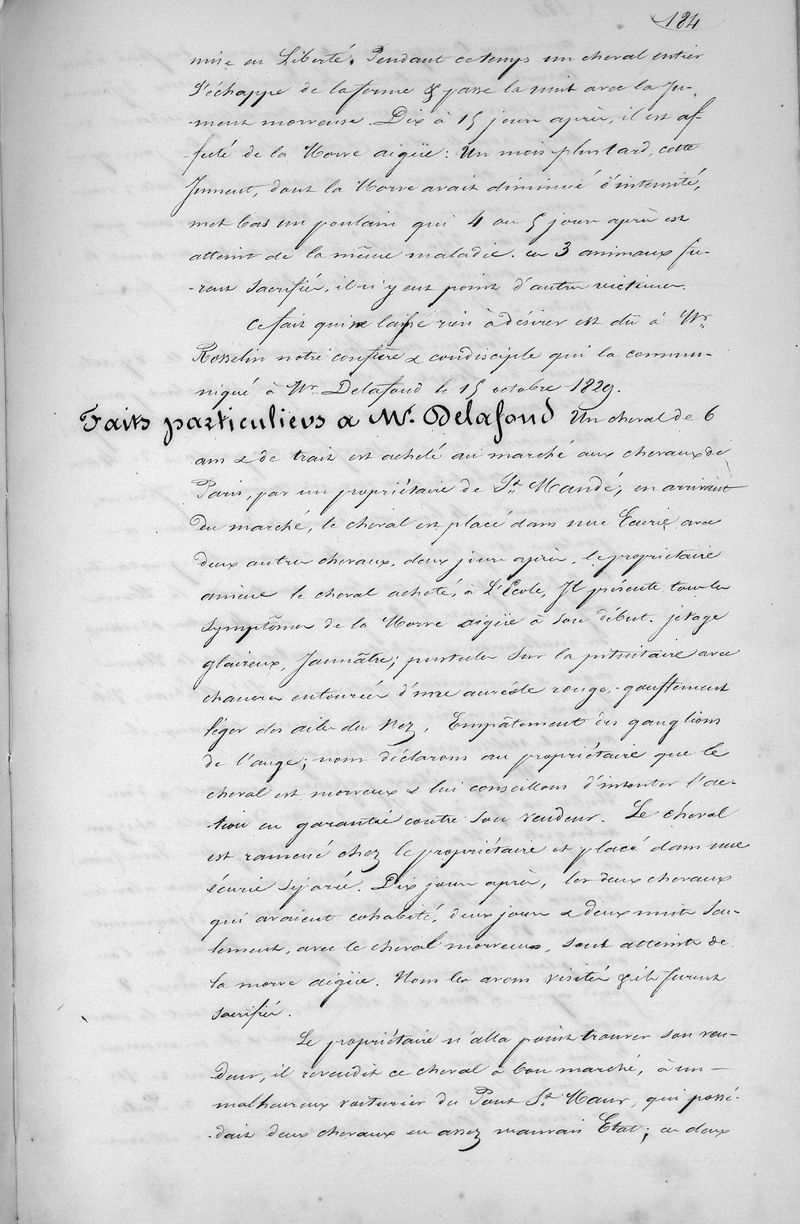 184
mise en Liberté. Pendant ce temps un cheval entier
s'échappe de la ferme & passe la nuit avec la Ju-
-ment morveuse. Dix à 15 jours après, il est af-
-fecté de la Morve aigüe: Un mois plus tard, cette
Jument, dont la Morve avait diminué d'intensité,
met bas un poulain qui 4 ou 5 jours après est
atteint de la même maladie. ces 3 animaux fu-
-rent sacrifiés, il n'y eut point d'autres victimes.
Ce fait qui ne laisse rien à désirer est dû à Mr.
Rosselin notre confrère & condisciple qui la commu-
niqué à Mr. Delafond le 15 octobre 1829.
Faits particuliers a Mr. Delafond Un cheval de 6
ans & de trait est acheté au marché aux chevaux de
Paris, par un propriétaire de St. Mandé; en arrivant
du marché, le cheval est placé dans une Ecurie avec
deux autres chevaux, deux jours après, le propriétaire
amène le cheval acheté, à L'Ecole, Il présente tous les
symptômes de la Morve aigüe à son début. jetage
glaireux, Jaunâtre; pustules sur la pituitaire avec
chancres entourées d'une auréole rouge, gonflement
léger des ailes du Nez, Empâtement des ganglions
de l'auge; nous déclarons au propriétaire que le
cheval est morveux & lui conseillons d'intenter l'ac-
-tion en garantie contre son vendeur. Le cheval
est ramené chez le propriétaire et placé dans une
écurie séparée. Dix jours après, les deux chevaux
qui avaient cohabité, deux jours & deux nuits seu-
lement, avec le cheval morveux, sont atteints de
la morve aigüe. Nous les avons visités & ils furent
sacrifiés.
Le propriétaire n'alla point trouver son ven-
deur, il revendit ce cheval à bon marché, à un
malheureux voiturier du Pont St. Maur, qui possé-
-dait deux chevaux en assez mauvais Etat; ces deux